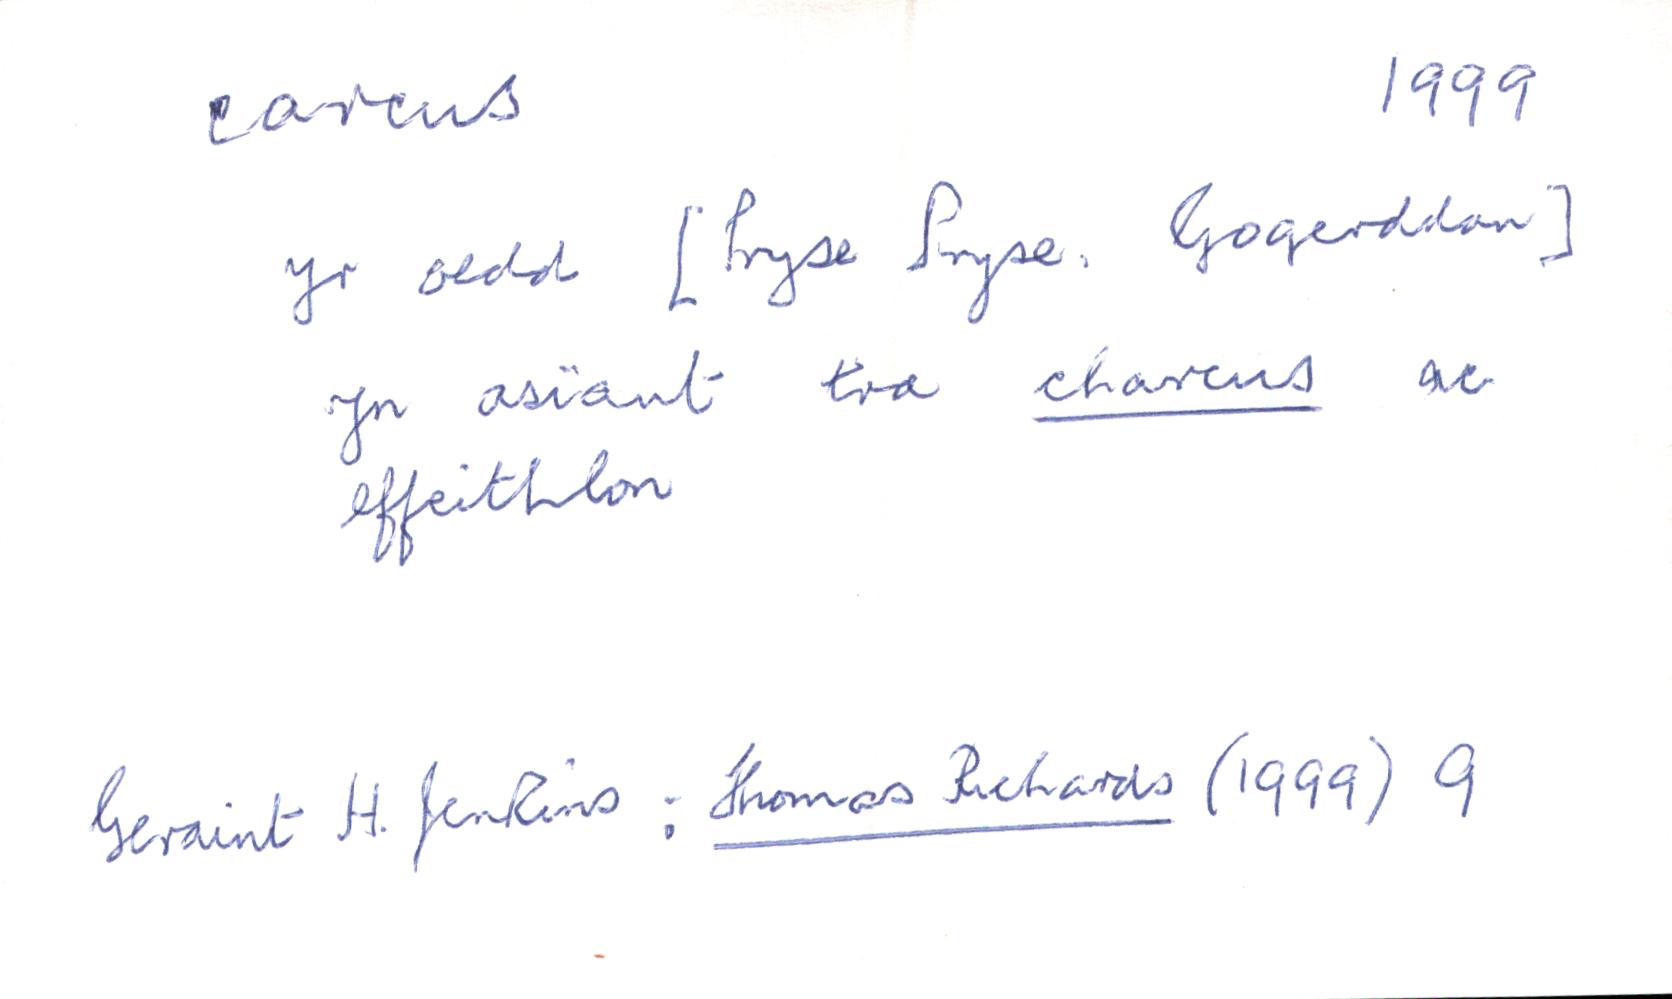 carcus 1999
yr oedd [Pryse Pryse, Gogerddan]
yn asïant tra charcus ac
effeithlon
Geraint H. Jenkins : Thomas Richards (1999) 9